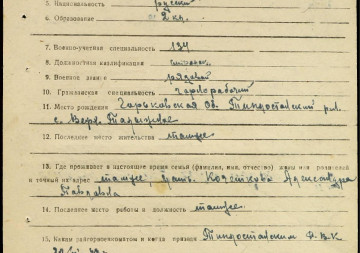 5. Национальность русский
6. Образование 2 кл.
7. Военно-учетная специальность 134
8. Должностная квалификация
9. Военное звание рядовой
10. Гражданская специальность чернорабочий
11. Место рождения Горьковская об.
с. Верх.
12. Последнее место жительства тамже
13. Где проживает в настоящее время семья (фамилия, имя, отчество) жены или родителей
и точный их адрес тамже, мать Александра
Павловна
14. Последнее место работы и должность тамже
15. Каким райгорвоенкоматом и когда призван Р.В.К